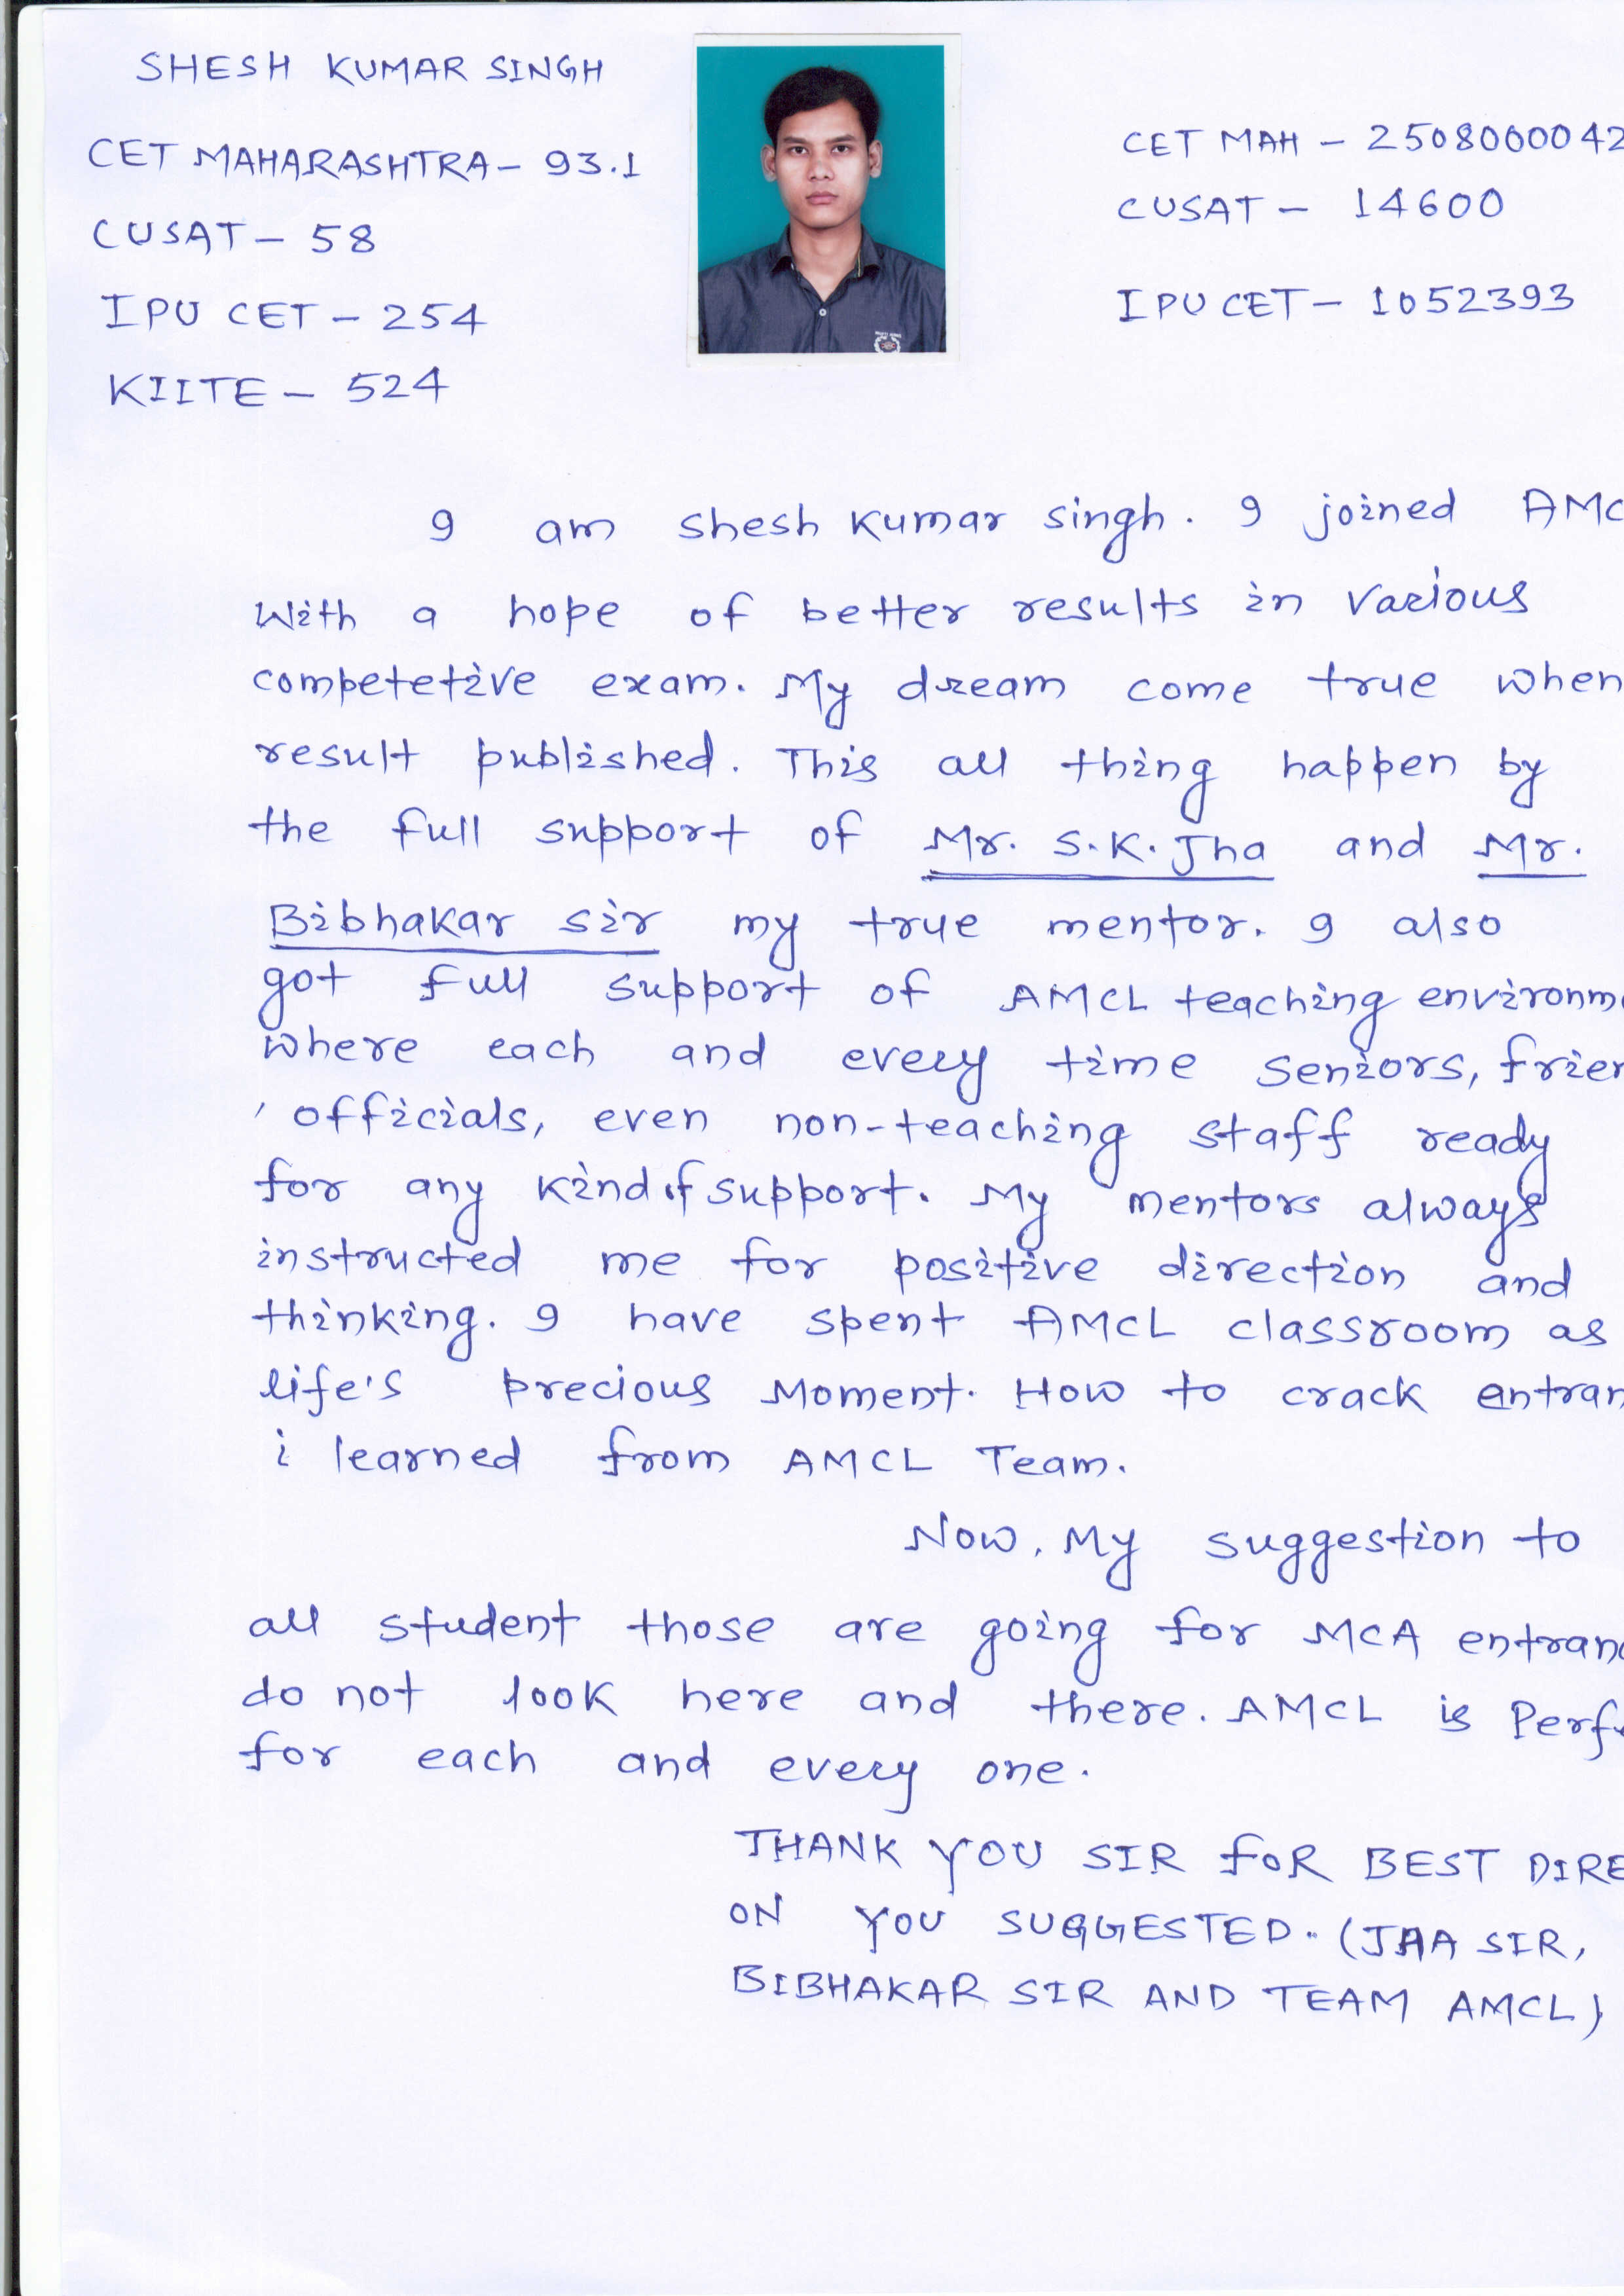 SHESH KUMAR SINGH
CET MAHARASHTRA - 93.1
CUSAT - 58
IPU CET - 254
KIITE - 524
CET MAH - 2508000042
CUSAT - 14600
IPU CET - 1052393
I am shesh kumar singh. I joined AMC
With a hope of better results in various
competetive exam. My dream come true when
result published. This all thing happen by
the full support of Mr. S.K. Jha and Mr.
Bibhakar sir my true mentor. I also
got full support of AMCL teaching environm
where each and every time seniors, frien
, officials, even non-teaching staff ready
for any kind of support. My mentors always
instructed me for positive direction and
thinking. I have spent AMCL classroom as
life's precious Moment. How to crack entran
i learned from AMCL Team.
Now, My suggestion to
all student those are going for MCA entranc
do not look here and there. AMCL is Perfe
for each and every one.
THANK YOU SIR FOR BEST DIRE
ON YOU SUGGESTED. (JHA SIR,
BIBHAKAR SIR AND TEAM AMCL)